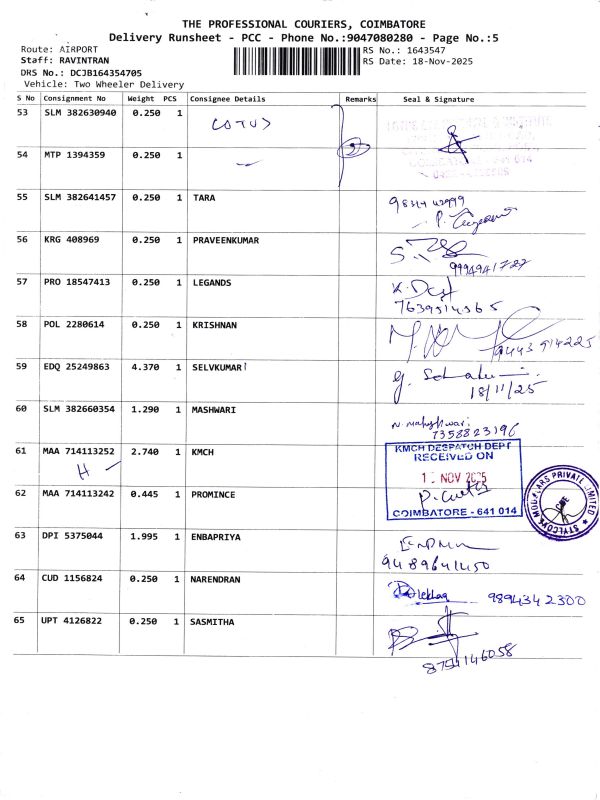 THE PROFESSIONAL COURIERS, COIMBATORE
Delivery Runsheet - PCC - Phone No.:9047080280 - Page No.:5
Route: AIRPORT
RS No.: 1643547
Staff: RAVINTRAN
RS Date: 18-Nov-2025
DRS No.: DCJB164354705
Vehicle: Two Wheeler Delivery
S No Consignment No Weight PCS Consignee Details Remarks Seal & Signature
53 SLM 382630940 0.250 1
54 MTP 1394359 0.250 1
641 014
55 SLM 382641457 0.250 1 TARA
56 KRG 408969 0.250 1 PRAVEENKUMAR
9994941727
57 PRO 18547413 0.250 1 LEGANDS
58 POL 2280614 0.250 1 KRISHNAN
9443 914225
59 EDQ 25249863 4.370 1 SELVKUMAR
18/11/25
60 SLM 382660354 1.290 1 MASHWARI
7358823196
61 MAA 714113252 2.740 1 KMCH
H -
KMCH DESPATCH DEPT
RECEIVED ON
NOV 2025
COIMBATORE - 641 014
62 MAA 714113242 0.445 1 PROMINCE
63 DPI 5375044 1.995 1 ENBAPRIYA
9489641450
64 CUD 1156824 0.250 1 NARENDRAN
9894342300
65 UPT 4126822 0.250 1 SASMITHA
8754146058